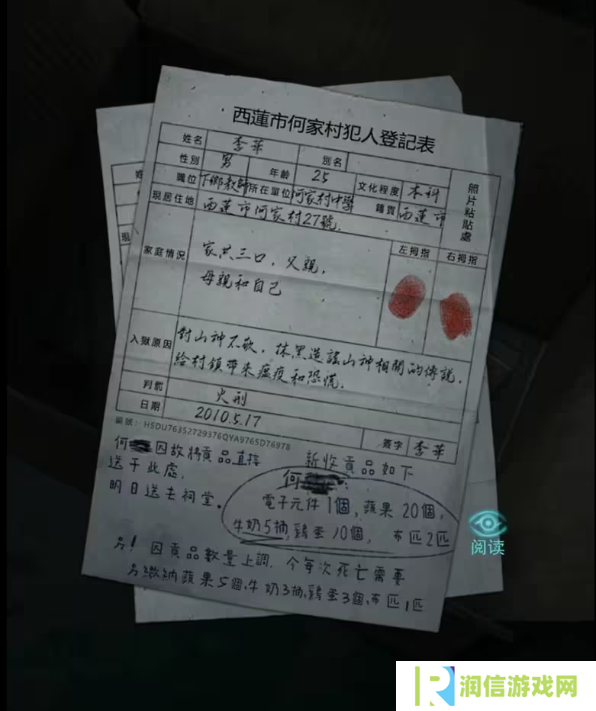 西蓮市何家村犯人登記表
姓名 李華 别名
性别 男 年齡 25 文化程度 本科
職位 下鄉教師 所在單位 何家村中學 籍貫 西蓮市
現居住地 西蓮市何家村27號
照片粘貼處
家庭情况 家共三口,父親,
母親和自己
左拇指 右拇指
入獄原因 對山神不敬,抹黑造謠山神相關的傳説,
給村鎮帶來瘟疫和恐慌,
判前 火刑
日期 2010.5.17
簽字 李華
何 因故将貢品直接
送于此處,
明日送去祠堂。
新收貢品如下
何
電子元件1個,蘋果20個,
牛奶5抽,鷄蛋10個, 布匹2匹
另!因貢品數量上調,今每次死亡需要
另繳納蘋果5個,牛奶3抽,鷄蛋3個,布匹1匹
阅读
润信游戏网